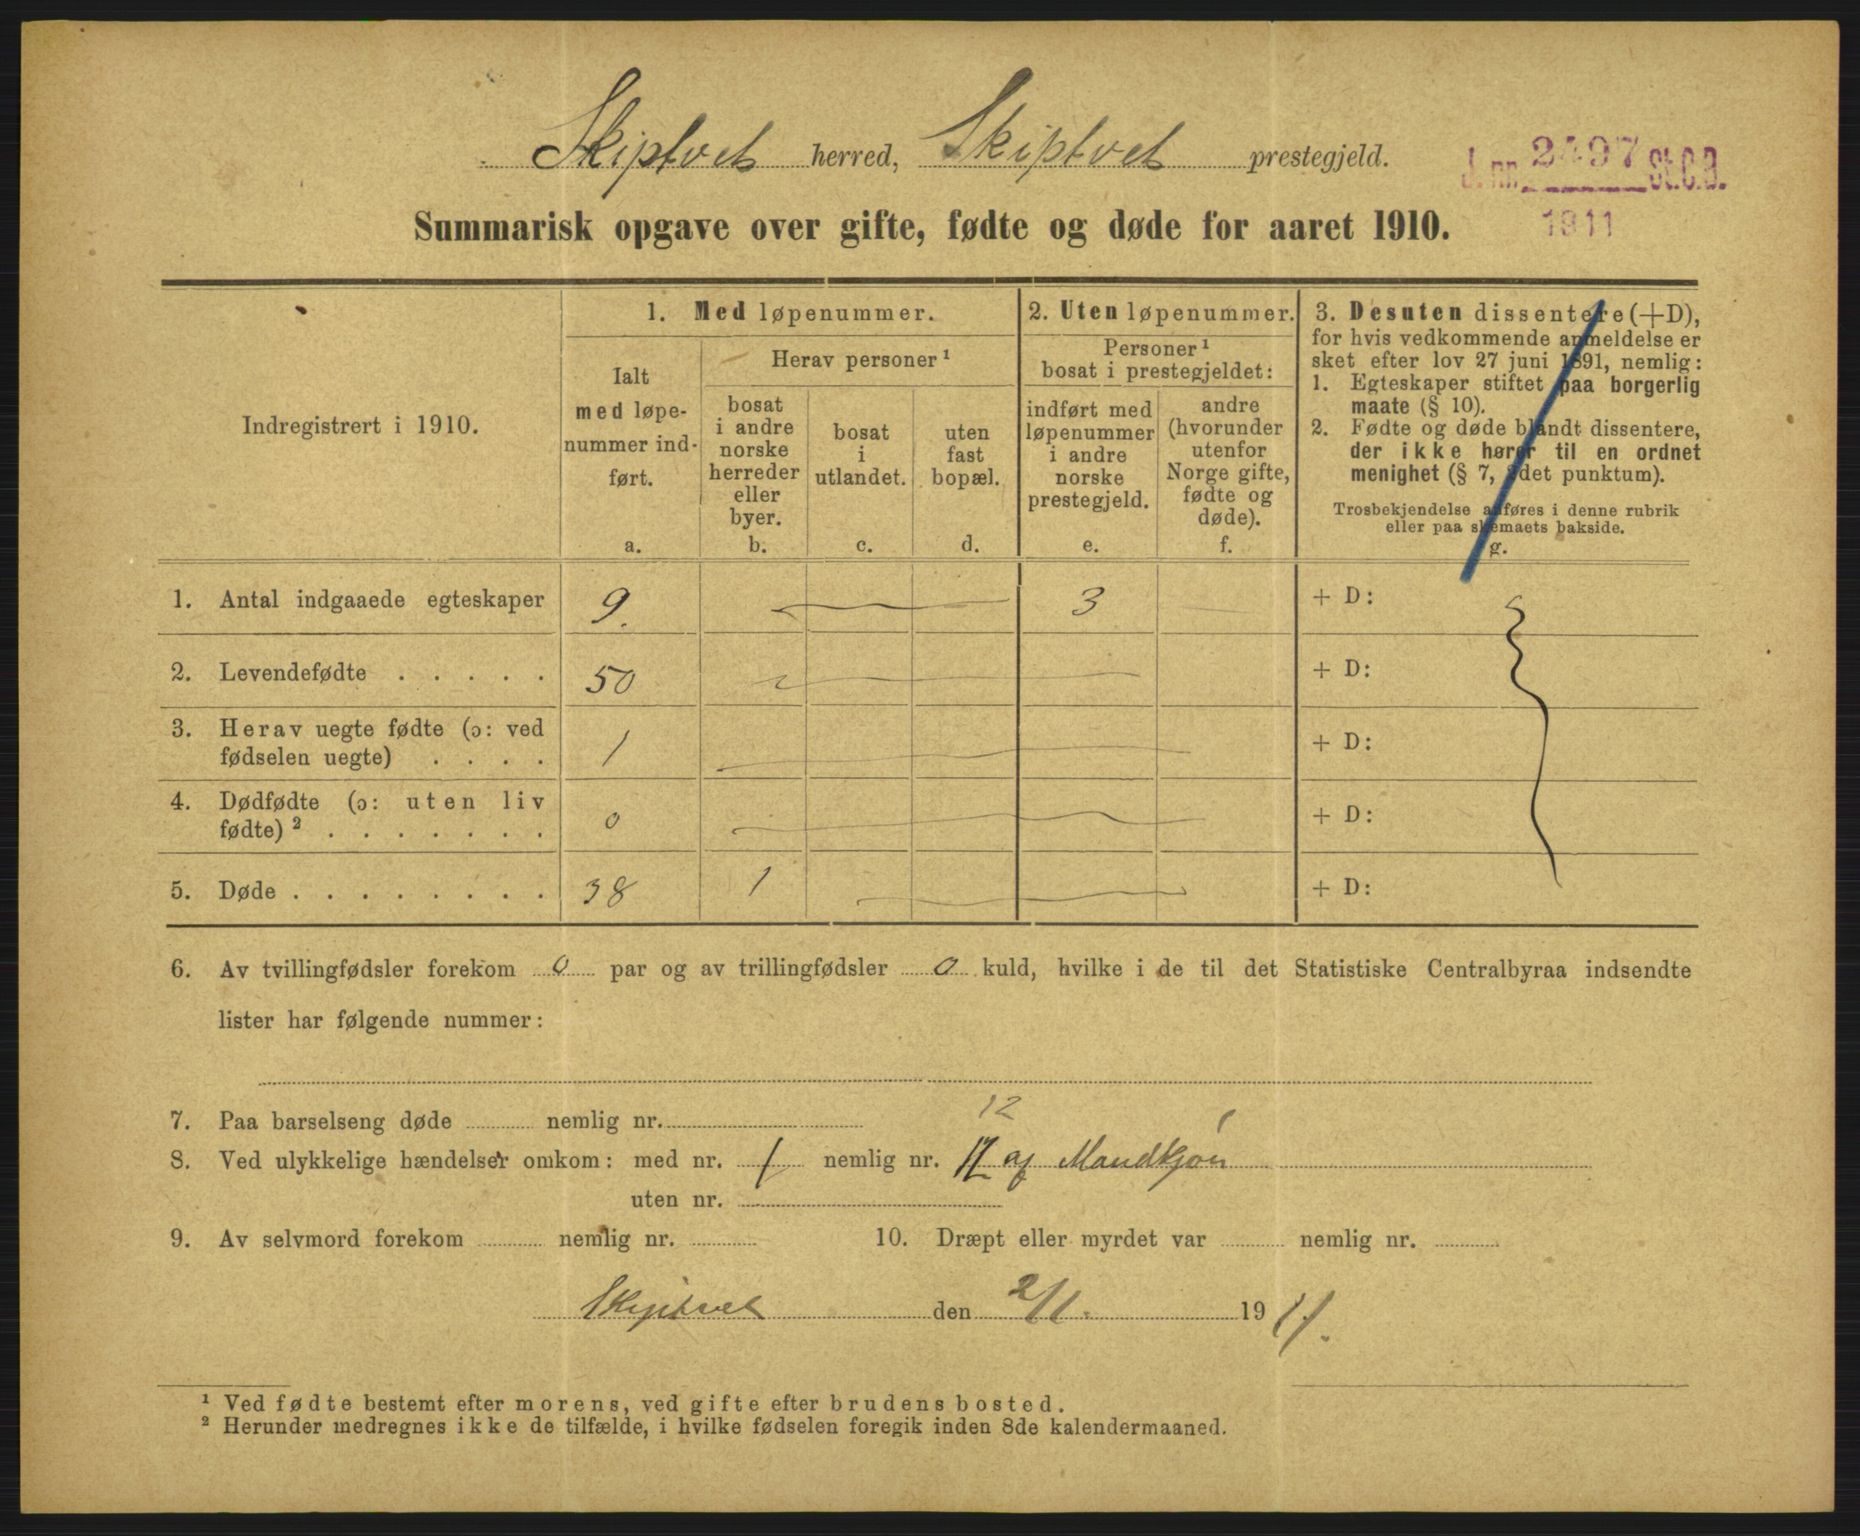 Skiptvet herred, Skiptvet prestegjeld.
J. nr. 2497 St.C.B.
1911
Summarisk opgave over gifte, fødte og døde for aaret 1910.
Indregistrert i 1910.
1. Med løpenummer.
Ialt
med løpe-
nummer ind-
ført.
a.
Herav personer ¹
bosat
i andre
norske
herreder
eller
byer.
b.
bosat
i
utlandet.
c.
uten
fast
bopæl.
d.
2. Uten løpenummer.
Personer ¹
bosat i prestegjeldet:
indført med
løpenummer
i andre
norske
prestegjeld.
e.
andre
(hvorunder
utenfor
Norge gifte,
fødte og
døde).
f.
3. Desuten dissentere (+D),
for hvis vedkommende anmeldelse er
sket efter lov 27 juni 1891, nemlig:
1. Egteskaper stiftet paa borgerlig
maate (§ 10).
2. Fødte og døde blandt dissentere,
der ikke hører til en ordnet
menighet (§ 7, 2det punktum).
Trosbekjendelse anføres i denne rubrik
eller paa skemaets bakside.
g.
1. Antal indgaaede egteskaper 9. 3 + D:
2. Levendefødte . . . . . 50 + D:
3. Herav uegte fødte (ɔ: ved
fødselen uegte) . . . . 1 + D:
4. Dødfødte (ɔ: uten liv
fødte) ² . . . . . . . 0 + D:
5. Døde . . . . . . . . 38 1 + D:
6. Av tvillingfødsler forekom 0 par og av trillingfødsler 0 kuld, hvilke i de til det Statistiske Centralbyraa indsendte
lister har følgende nummer:
7. Paa barselseng døde nemlig nr.
12
8. Ved ulykkelige hændelser omkom: med nr. 1 nemlig nr. af Mandkjøn
uten nr.
9. Av selvmord forekom nemlig nr. 10. Dræpt eller myrdet var nemlig nr.
Skiptvet den 2/1. 1911.
¹ Ved fødte bestemt efter morens, ved gifte efter brudens bosted.
² Herunder medregnes ikke de tilfælde, i hvilke fødselen foregik inden 8de kalendermaaned.